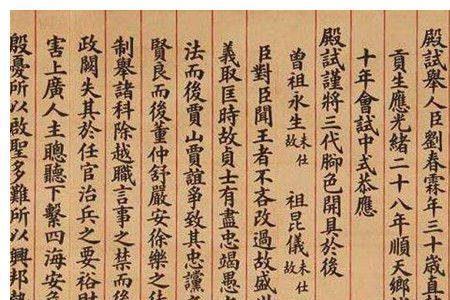 殿試舉人臣劉春霖年三十歲直
貢生應光緒二十八年順天鄉
十年會試中式恭應
殿試謹將三代腳色開具於後
曾祖永生未仕故 祖昆儀未仕故
臣對臣聞王者不吝改過故盛
義取匡時故貢士有盡忠竭愚
法而後賈山賈誼爭致其忠讜
賢良而後董仲舒嚴安徐樂之
制舉諸科除越職言事之禁而後
政闕失其於任官治兵之要裕財
害上廣人主聰聽下繫四海安
殷憂所以啟聖多難所以興邦